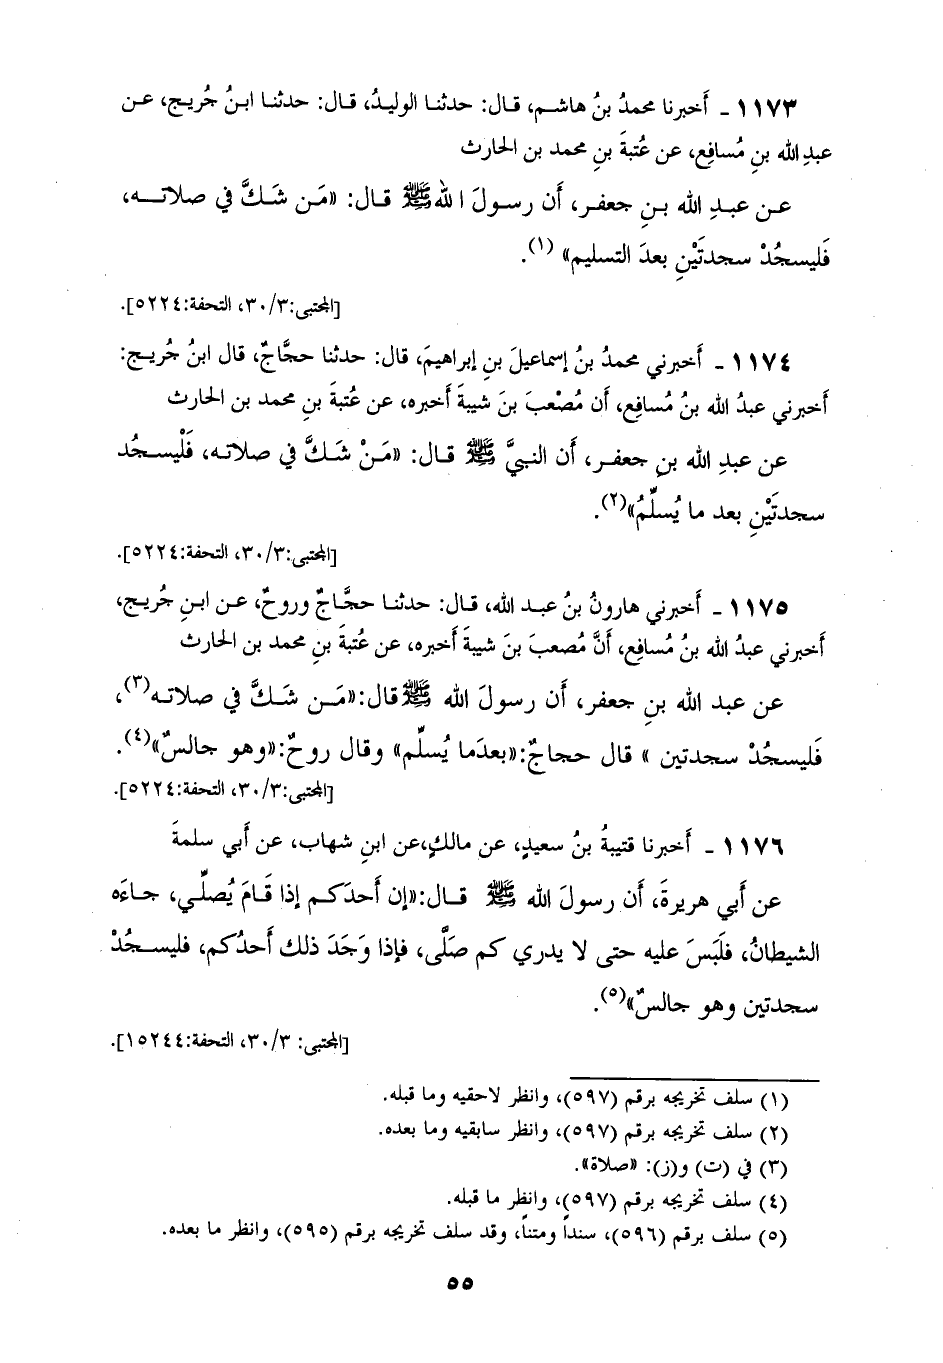 ١١٧٣ ـ أَخبرنا محمدُ بنُ هاشم، قال: حدثنا الوليدُ، قال: حدثنا ابنُ جُريج، عن
عبدِ الله بنِ مُسافِع، عن عُتبةَ بنِ محمد بن الحارث
عن عبدِ الله بنِ جعفر، أَن رسولَ الله ﷺ قال: «مَن شَكَّ في صلاته،
فَليسجُدْ سجدتَيْنِ بعدَ التسليم» (١).
[المجتبى:٣٠/٣، التحفة:٥٢٢٤].
١١٧٤ ـ أَخبرني محمدُ بنُ إسماعيلَ بنِ إبراهيمَ، قال: حدثنا حجَّاجٌ، قال ابنُ جُريج:
أَخبرني عبدُ الله بنُ مُسافِع، أَن مُصْعَبَ بنَ شيبةَ أَخبره، عن عُتبةَ بنِ محمد بن الحارث
عن عبدِ الله بنِ جعفر، أَن النبيَّ ﷺ قال: «مَنْ شَكَّ في صلاته، فَلْيسجُد
سجدتَيْنِ بعد ما يُسلِّمُ»(٢).
[المجتبى:٣٠/٣، التحفة:٥٢٢٤].
١١٧٥ ـ أَخبرني هارونُ بنُ عبد الله، قال: حدثنا حجَّاجٌ وروحٌ، عن ابنِ جُريج،
أَخبرني عبدُ الله بنُ مُسافع، أَنَّ مُصعبَ بنَ شيبةَ أَخبره، عن عُتبةَ بنِ محمد بن الحارث
عن عبد الله بنِ جعفر، أَن رسولَ الله ﷺ قال:«مَن شَكَّ في صلاته(٣)،
فَليسجُدْ سجدتين » قال حجاجٌ:«بعدَما يُسلِّم» وقال روحٌ:«وهو جالسٌ»(٤).
[المجتبى:٣٠/٣، التحفة:٥٢٢٤].
١١٧٦ ـ أَخبرنا قتيبةُ بنُ سعيدٍ، عن مالكٍ،عن ابنِ شهاب، عن أَبي سلمةَ
عن أَبي هريرةَ، أَن رسولَ الله ﷺ قال:«إن أَحدَكم إذا قَامَ يُصلِّي، جاءَه
الشيطانُ، فلَبَسَ عليه حتى لا يدري كم صَلَّى، فإذا وَجَدَ ذلك أَحدُكم، فليسجُدْ
سجدتين وهو جالسٌ»(٥).
[المجتبى: ٣٠/٣، التحفة:١٥٢٤٤].
(١) سلف تخريجه برقم (٥٩٧)، وانظر لاحقيه وما قبله.
(٢) سلف تخريجه برقم (٥٩٧)، وانظر سابقيه وما بعده.
(٣) في (ت) و(ز): «صلاة».
(٤) سلف تخريجه برقم (٥٩٧)، وانظر ما قبله.
(٥) سلف برقم (٥٩٦)، سنداً ومتناً، وقد سلف تخريجه برقم (٥٩٥)، وانظر ما بعده.
٥٥